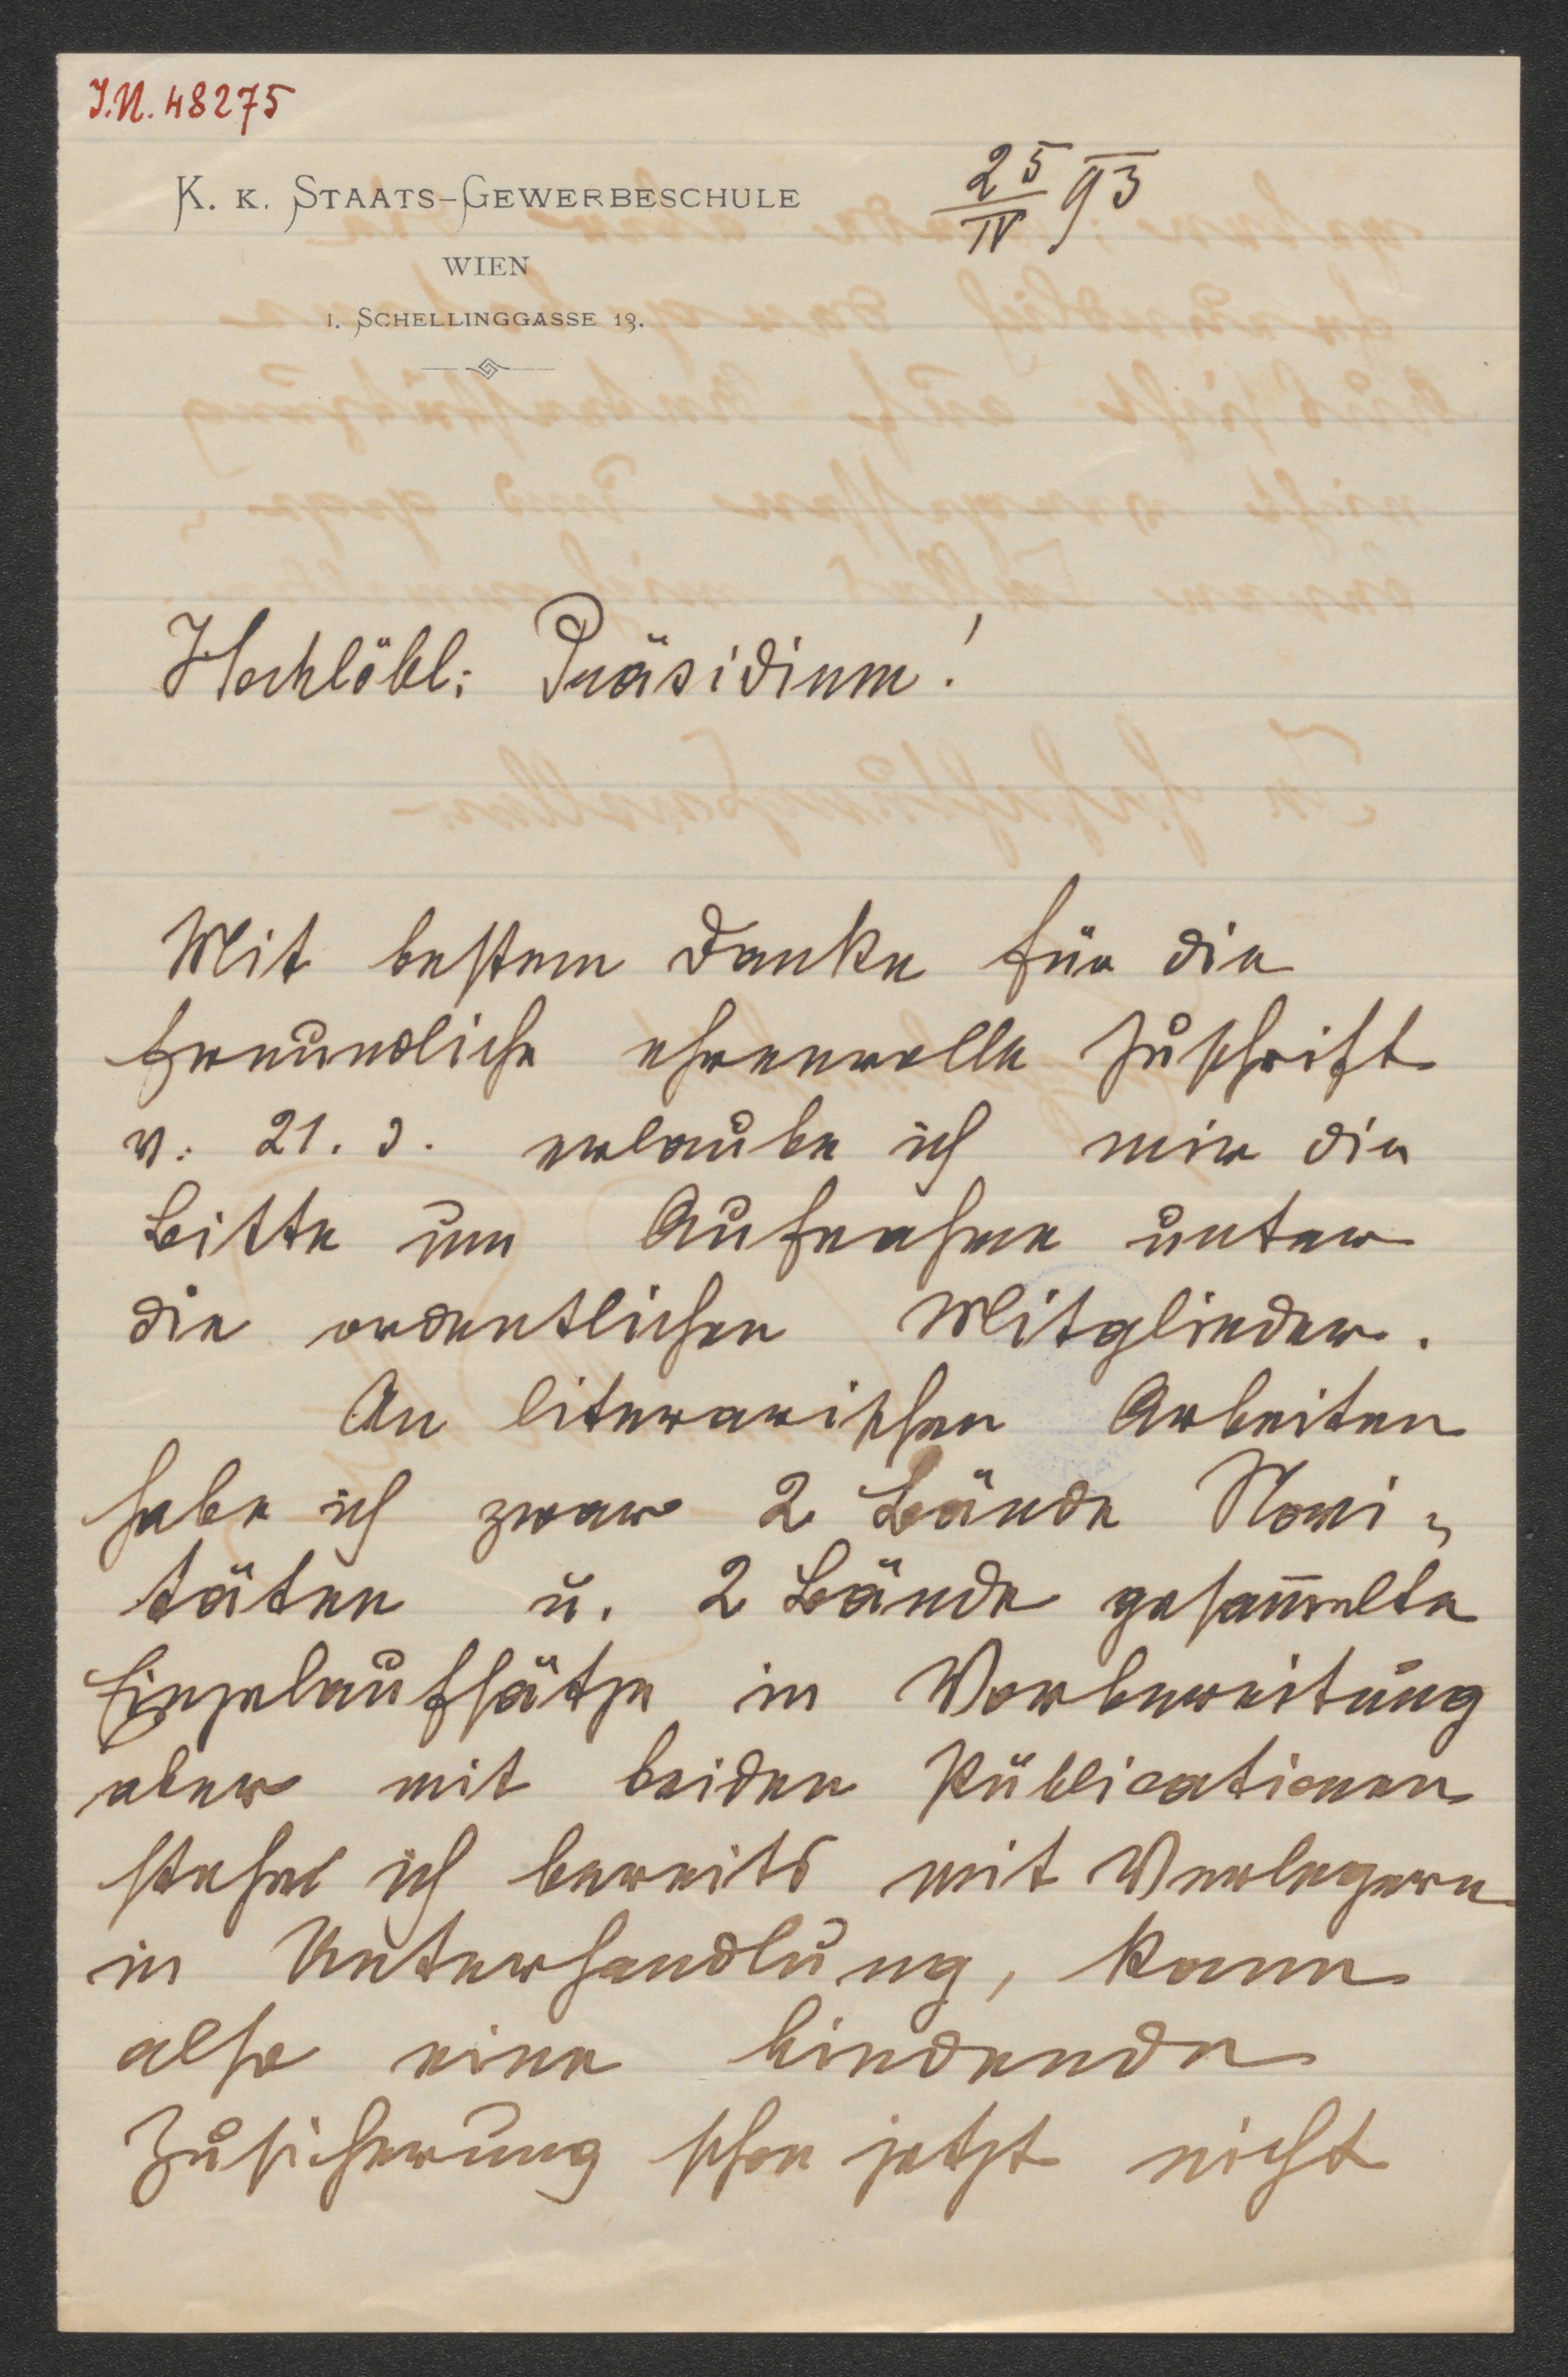 J.N. 48275
K. K. STAATS-GEWERBESCHULE
WIEN
I. SCHELLINGGASSE 13.
25/IV 93
Hochlöbl: Präsidium!
Mit bestem Danke für die
freundliche ehrenvolle Zuschrift
v. 21. d. erlaube ich mir die
Bitte um Aufnahme unter
die ordentlichen Mitglieder.
An literarischen Arbeiten
habe ich zwar 2 Bände Novi=
täten u. 2 Bände gesam̅elte
Einzelaufsätze in Vorbereitung
aber mit beiden Publicationen
stehe ich bereits mit Verlegern
in Unterhandlung, kann
also eine bindende
Zusicherung schon jetzt nicht